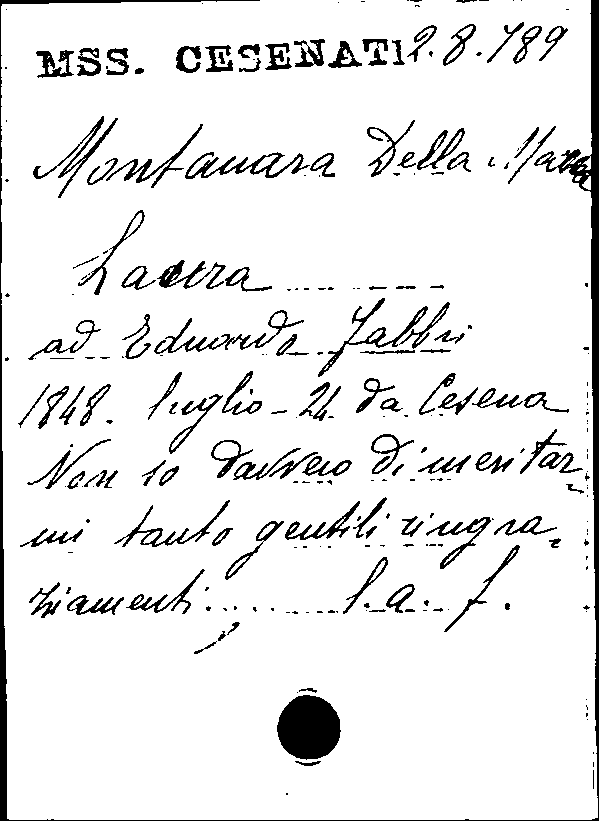 MSS. CESENATI 2.8.789
Montanara Della Massa
Laura
ad Eduardo Fabbri
1848. luglio - 24 da Cesena
Non so davvero di meritar-
mi tanto gentili ringra-
ziamenti..... l. a. f.